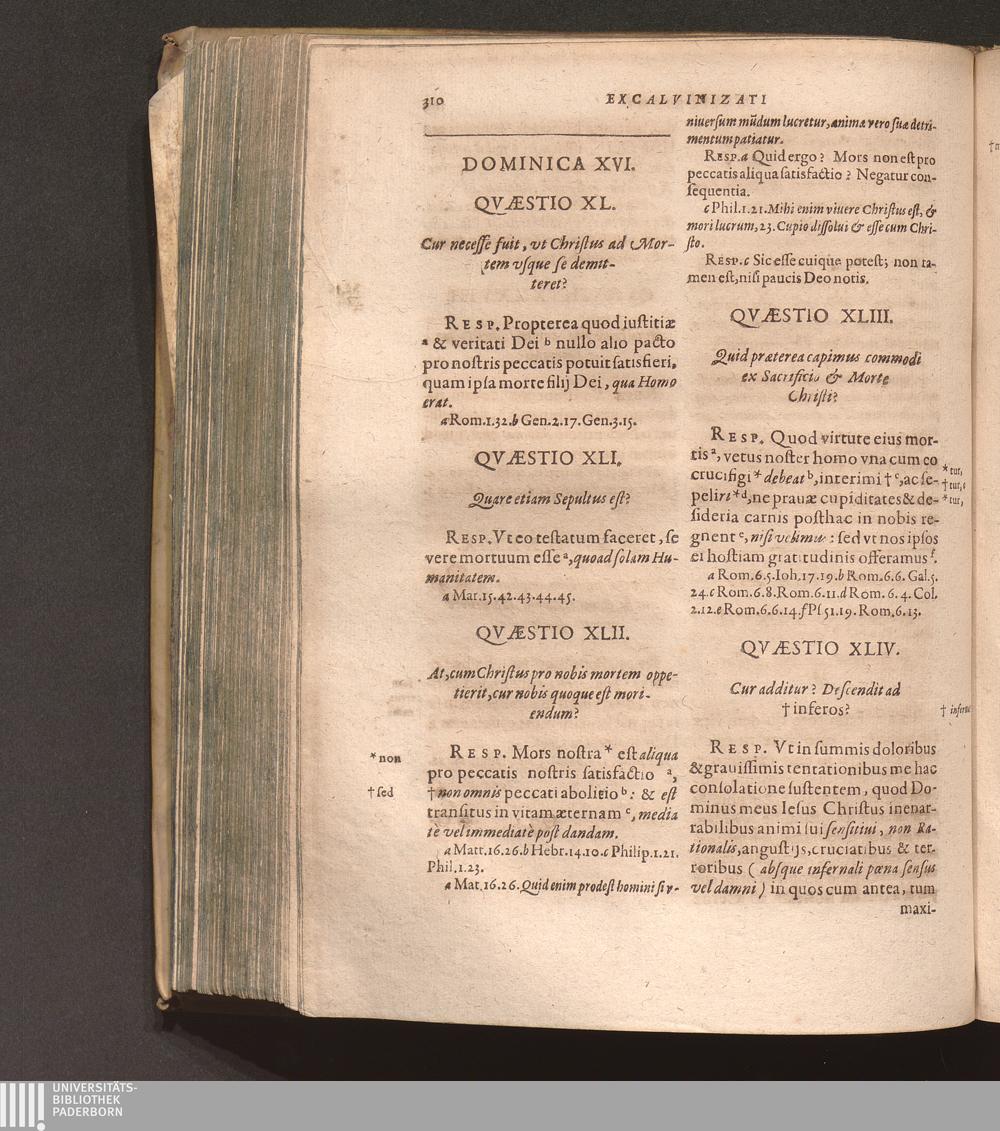 310
EXCALVINIZATI
DOMINICA XVI.
QVÆSTIO XL.
Cur necesse fuit, vt Christus ad Mor-
tem vsque se demit-
teret?
RESP. Propterea quod iustitiæ
a & veritati Dei b nullo alio pacto
pro nostris peccatis potuit satisfieri,
quam ipsa morte filij Dei, qua Homo
erat.
a Rom.1.32. b Gen.2.17. Gen.3.15.
QVÆSTIO XLI.
Quare etiam Sepultus est?
RESP. Vt eo testatum faceret, se
vere mortuum esse a, quoad solam Hu-
manitatem.
a Mar.15.42.43.44.45.
QVÆSTIO XLII.
At, cum Christus pro nobis mortem oppe-
tierit, cur nobis quoque est mori-
endum?
* non
† sed
RESP. Mors nostra * est aliqua
pro peccatis nostris satisfactio a,
† non omnis peccati abolitio b: & est
transitus in vitam æternam c, media
tè vel immediatè post dandam.
a Matt.16.26. b Hebr.14.10. c Philip.1.21.
Phil.1.23.
a Mat.16.26. Quid enim prodest homini si v-
niuersum mũdum lucretur, animæ vero suæ detri-
mentum patiatur.
RESP. a Quid ergo? Mors non est pro
peccatis aliqua satisfactio? Negatur con-
sequentia.
c Phil.1.21. Mihi enim viuere Christus est, &
mori lucrum, 23. Cupio dissolui & esse cum Chri-
sto.
RESP. c Sic esse cuique potest; non ta-
men est, nisi paucis Deo notis.
QVÆSTIO XLIII.
Quid præterea capimus commodi
ex Sacrificio & Morte
Christi?
RESP. Quod virtute eius mor-
tis a, vetus noster homo vna cum eo
crucifigi * debeat b, interimi † c, ac se-
peliri * d, ne prauæ cupiditates & de-
sideria carnis posthac in nobis re-
gnent e, nisi velimus: sed vt nos ipsos
ei hostiam gratitudinis offeramus f.
* tur,
† tur,
* tur,
a Rom.6.5. Ioh.17.19. b Rom.6.6. Gal.5.
24. c Rom.6.8. Rom.6.11. d Rom.6.4. Col.
2.12. e Rom.6.6.14. f Ps 51.19. Rom.6.13.
QVÆSTIO XLIV.
Cur additur? Descendit ad
† inferos?
RESP. Vt in summis doloribus
& grauissimis tentationibus me hac
consolatione sustentem, quod Do-
minus meus Iesus Christus inenar-
rabilibus animi sui sensitiui, non Ra-
tionalis, angustijs, cruciatibus & ter-
roribus (absque infernali pœna sensus
vel damni) in quos cum antea, tum
maxi-
UNIVERSITÄTS-
BIBLIOTHEK
PADERBORN